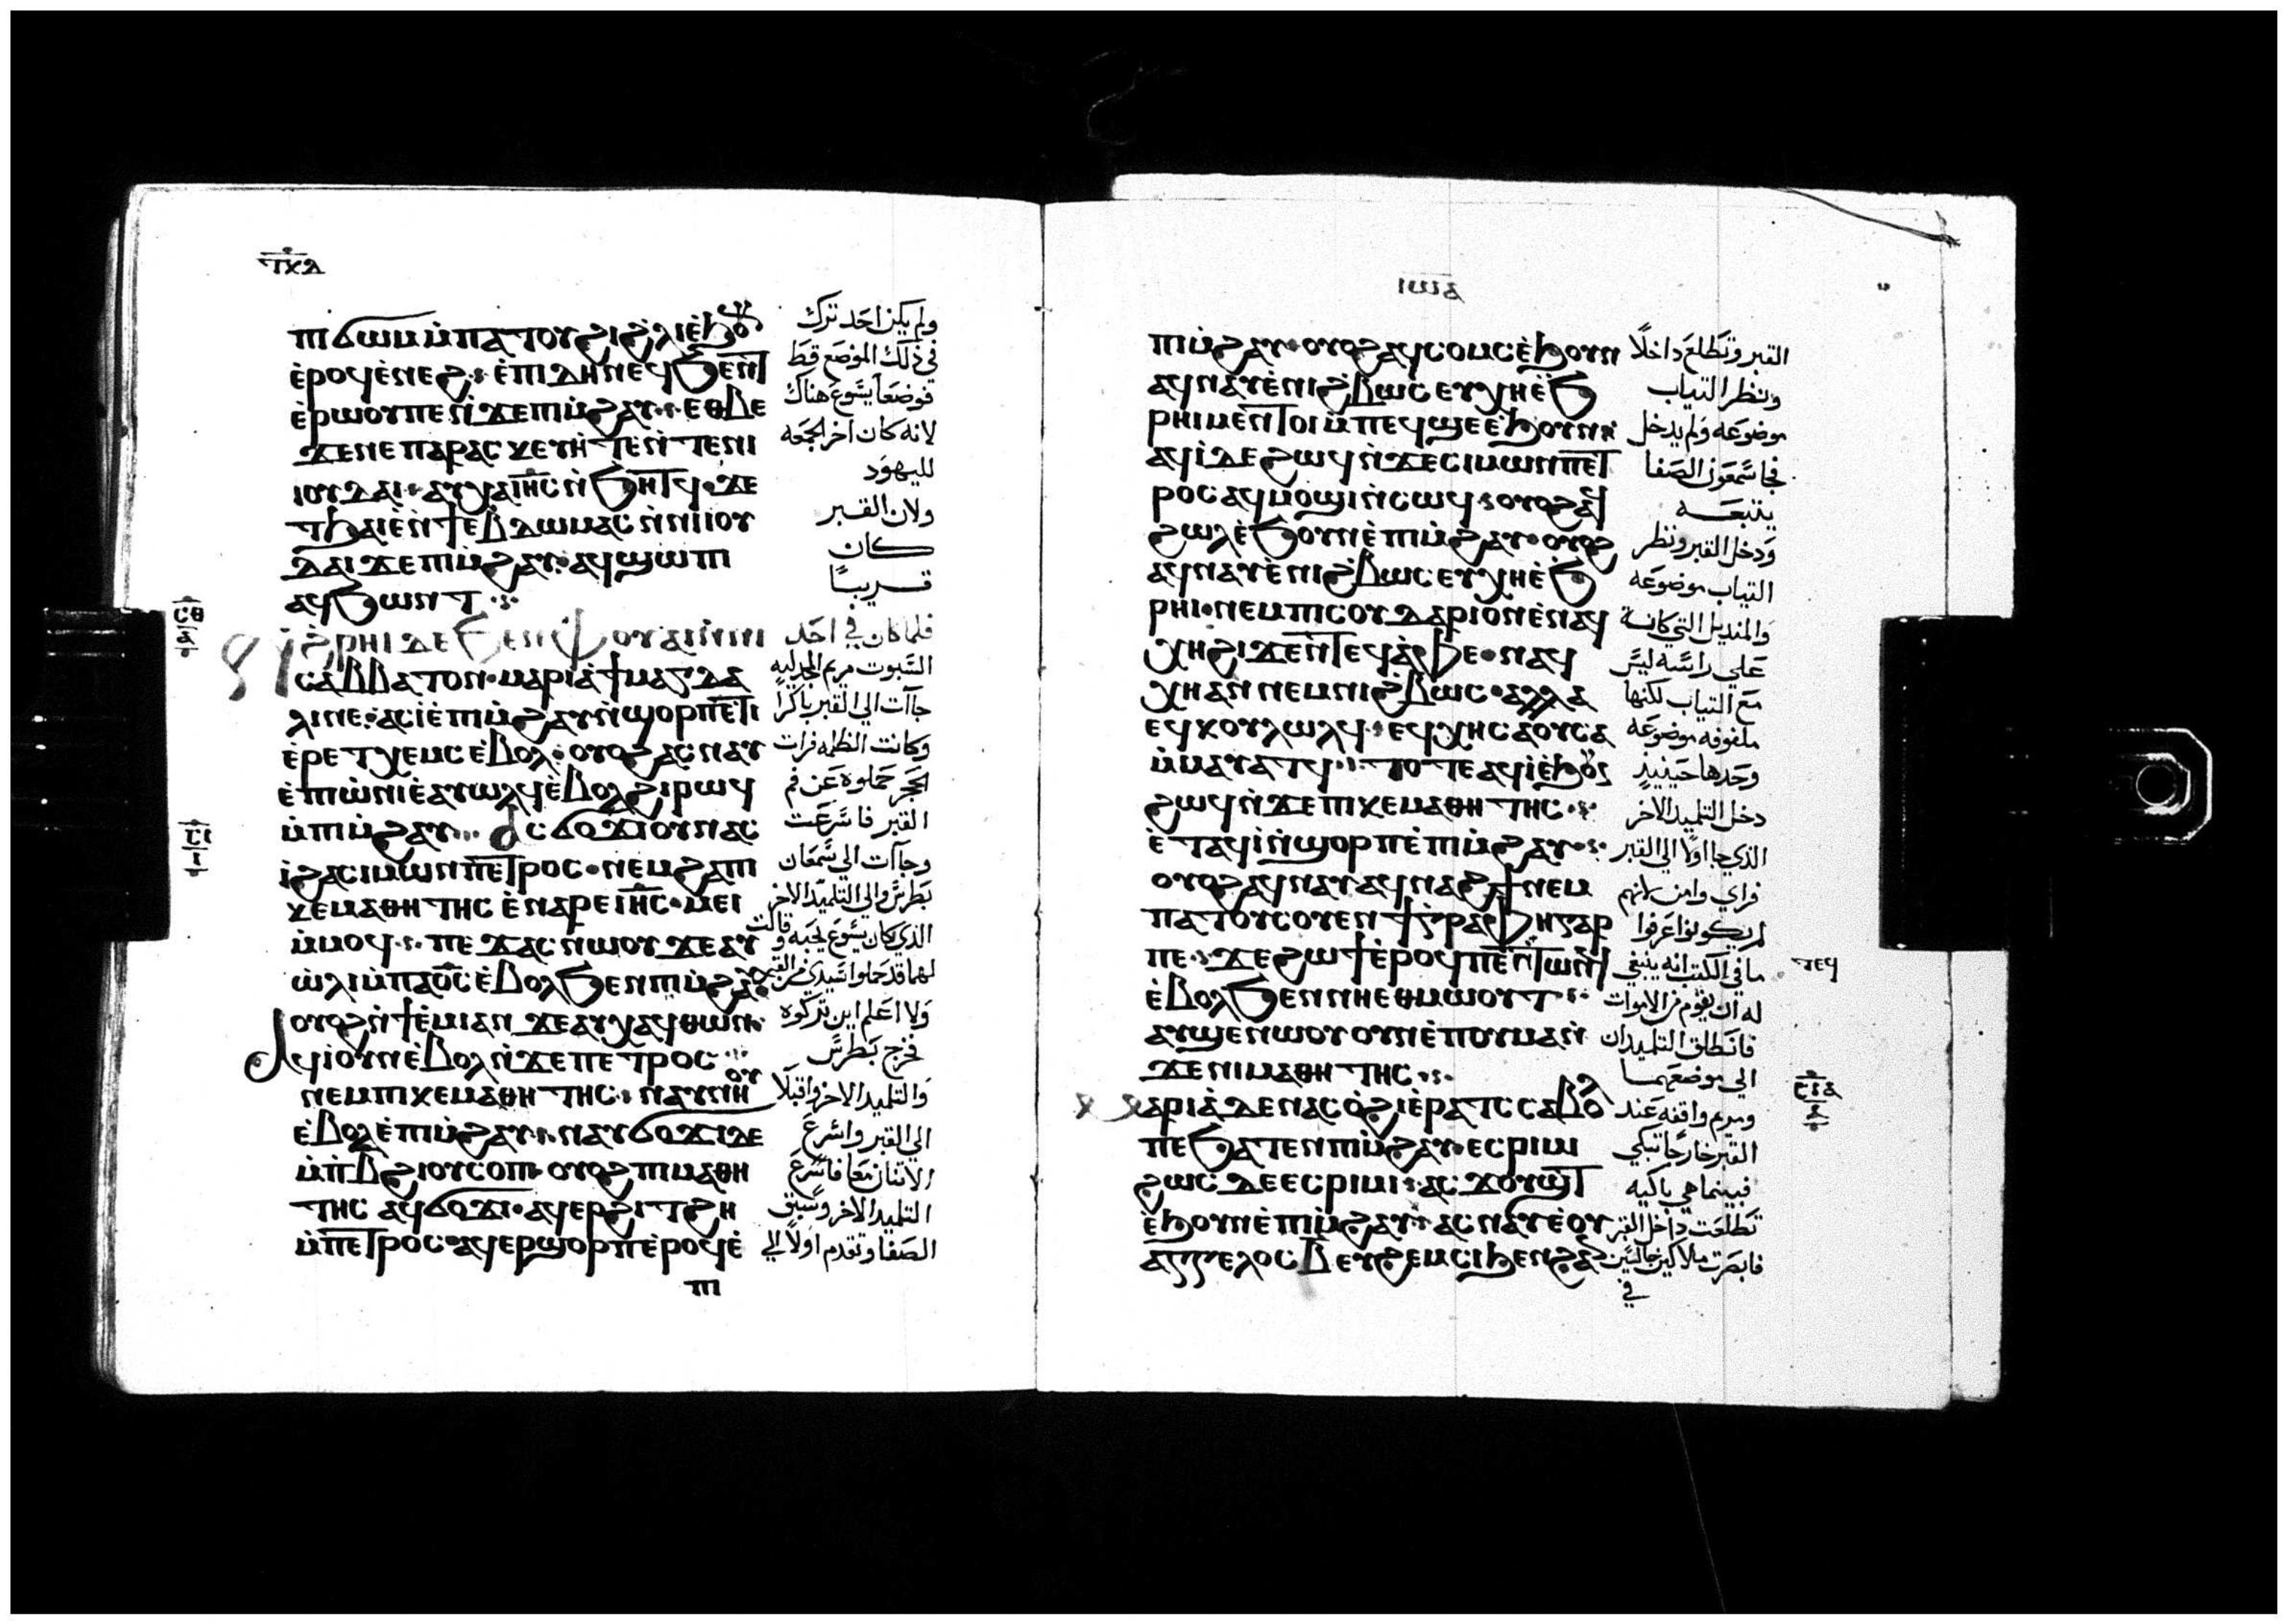 ⲡϭⲱⲙ ⲙ̀ⲡⲁⲧⲟⲩϩⲓ ϩ̀ⲗⲓ ⲉ̀ϧⲟⲩⲛ
ⲉ̀ⲣⲟϥ ⲉ̀ⲛⲉϩ ⲉ̀ⲡⲓⲇⲏ ⲛⲉϥϧⲉⲛⲧ
ⲉ̀ⲣⲱⲟⲩ ⲡⲉ ⲛ̀ϫⲉ ⲡⲓⲙ̀ϩⲁⲩ ⲉⲑⲃⲉ
ϫⲉ ⲛⲉ ⲡⲁⲣⲁⲥⲕⲉⲩⲏ ⲧⲉ ⲛ̀ⲧⲉ ⲛⲓ
ⲓⲟⲩⲇⲁⲓ ⲁⲩⲭⲁ ⲓⲏ̅ⲥ ⲛ̀ϧⲏⲧϥ ϫⲉ
ⲇⲁⲓ ϫⲉ ⲡⲓⲙ̀ϩⲁⲩ ⲁϥϣⲱⲡⲓ
ⲁϥϧⲱⲛⲧ
ⲛ̀ϩ̀ⲣⲏⲓ ⲇⲉ ϧⲉⲛ ⲫⲟⲩⲁⲓ ⲛ̀ⲛⲓ
ⲥⲁⲃⲃⲁⲧⲟⲛ ⲙⲁⲣⲓⲁ ϯⲙⲁⲅⲇⲁ
ⲗⲓⲛⲉ ⲁⲥⲓ̀ ⲉ̀ⲡⲓⲙ̀ϩⲁⲩ ⲛ̀ϣⲟⲣⲡ ⲉ̀ⲧⲓ
ⲉ̀ⲣⲉ ⲧⲭⲉⲙⲥ ⲉ̀ⲃⲟⲗ ⲟⲩⲟϩ ⲁⲥⲛⲁⲩ
ⲉ̀ⲡⲓⲱ̀ⲛⲓ ⲉ̀ⲁⲩⲱⲗϥ ⲉ̀ⲃⲟⲗ ϩⲓⲣⲱϥ
ⲙ̀ⲡⲓⲙ̀ϩⲁⲩ ⲁⲥϭⲟϫⲓ ⲟⲩⲛ ⲁⲥ
ⲓ̀ ϩⲁ ⲥⲓⲙⲱⲛ ⲡⲉⲧⲣⲟⲥ ⲛⲉⲙ ϩⲁ ⲡⲓ
ⲕⲉⲙⲁⲑⲏⲧⲏⲥ ⲉ̀ⲛⲁⲣⲉ ⲓⲏ̅ⲥ ⲙⲉⲓ
ⲙ̀ⲙⲟϥ ⲡⲉϫⲁⲥ ⲛⲱⲟⲩ ϫⲉ ⲁⲩ
ⲱ̀ⲗⲓ ⲙ̀ⲡⲁⲟ̅ⲥ ⲉ̀ⲃⲟⲗ ϧⲉⲛ ⲡⲓⲙ̀ϩⲁⲩ
ⲟⲩⲟϩ ⲛ̀ϯⲉ̀ⲙⲓ ⲁⲛ ϫⲉ ⲁⲩⲭⲁϥ ⲑⲱⲛ
ⲁϥⲓ̀ ⲟⲩⲛ ⲉ̀ⲃⲟⲗ ⲛ̀ϫⲉ ⲡⲉⲧⲣⲟⲥ
ⲛⲉⲙ ⲡⲓⲕⲉⲙⲁⲑⲏⲧⲏⲥ ⲛⲁⲩⲛⲏⲟⲩ
ⲉ̀ⲃⲟⲗ ⲉ̀ⲡⲓⲙ̀ϩⲁⲩ ⲛⲁⲩϭⲟϫⲓ ⲇⲉ
ⲙ̀ⲡⲃ̅ ϩⲓⲟⲩⲥⲟⲡ ⲟⲩⲟϩ ⲡⲓⲙⲁⲑⲏ
ⲧⲏⲥ ⲁϥϭⲟϫⲓ ⲁϥⲉⲣϩⲓⲧϩⲏ
ⲙ̀ⲡⲉⲧⲣⲟⲥ ⲁϥⲉⲣϣⲟⲣⲡ ⲉ̀ⲣⲟϥ ⲉ̀
ⲡⲓ
ولم يكن احد ترك
في ذلك الموضع قط
فوضعا يسوع هناك
لانه كان اخر الجمعه
لليهود
ولان القبر
كان
قريبًا
فلما كان في احد
السبوت مريم المجدليه
جآت الي القبر باكرًا
وكانت الظلمه فرات
الحجر حملوه عن فم
القبر فاسرعت
وجآت الي سمعان
بطرس والي التلميذ الاخر
الذي كان يسوع يحبه وقالت
لهما قد حملوا سيدي من القبر
ولا اعلم اين تركوه
فخرج بطرس
والتلميذ الاخر واقبلا
الي القبر واسرع
الاتنان معا فاسرع
التلميذ الاخر وسبق
الصفا وتقدم اولًا الي
ⲓⲱⲁ
ⲡⲓⲙ̀ϩⲁⲩ ⲟⲩⲟϩ ⲁϥⲥⲟⲙⲥ ⲉ̀ϧⲟⲩⲛ
ⲁϥⲛⲁⲩ ⲉ̀ⲛⲓϩ̀ⲃⲱⲥ ⲉⲩⲭⲏ ⲉ̀ϧ
ⲣⲏⲓ ⲙⲉⲛⲧⲟⲓ ⲙ̀ⲡⲉϥϣⲉ ⲉ̀ϧⲟⲩⲛ
ⲁϥⲓ̀ ⲇⲉ ϩⲱϥ ⲛ̀ϫⲉ ⲥⲓⲙⲱⲛ ⲡⲉⲧ
ⲣⲟⲥ ⲁϥⲙⲟϣⲓ ⲛ̀ⲥⲱϥ ⲟⲩⲟϩ ⲁϥ
ϩⲱⲗ ⲉ̀ϧⲟⲩⲛ ⲉ̀ⲡⲓⲙ̀ϩⲁⲩ ⲟⲩⲟϩ
ⲁϥⲛⲁⲩ ⲉ̀ⲛⲓϩ̀ⲃⲱⲥ ⲉⲩⲭⲏ ⲉ̀ϧ
ⲣⲏⲓ ⲛⲉⲙ ⲡⲓⲥⲟⲩⲇⲁⲣⲓⲟⲛ ⲉ̀ⲛⲁϥ
ⲭⲏ ϩⲓϫⲉⲛ ⲧⲉϥⲁ̀ⲫⲉ ⲛⲁϥ
ⲭⲏ ⲁⲛ ⲛⲉⲙ ⲛⲓϩ̀ⲃⲱⲥ ⲁⲗⲗⲁ
ⲉϥⲕⲟⲩⲗⲱⲗϥ ⲉϥⲭⲏ ⲥⲁⲟⲩⲥⲁ
ⲙ̀ⲙⲁⲩⲁⲧϥ ⲧⲟⲧⲉ ⲁϥⲓ̀ ⲉ̀ϧⲟⲩⲛ
ϩⲱϥ ⲛ̀ϫⲉ ⲡⲓⲕⲉⲙⲁⲑⲏⲧⲏⲥ
ⲉ̀ⲧⲁϥⲓ̀ ⲛ̀ϣⲟⲣⲡ ⲉ̀ⲡⲓⲙ̀ϩⲁⲩ
ⲟⲩⲟϩ ⲁϥⲛⲁⲩ ⲁϥⲛⲁϩϯ ⲛⲉⲙ
ⲡⲁⲧⲟⲩⲥⲟⲩⲉⲛ ϯⲅⲣⲁⲫⲏ ⲅⲁⲣ
ⲡⲉ ϫⲉ ϩⲱϯ ⲉ̀ⲣⲟϥ ⲡⲉ ⲛ̀ⲧⲉϥⲧⲱⲛϥ
ⲉ̀ⲃⲟⲗ ϧⲉⲛ ⲛⲏⲉⲑⲙⲱⲟⲩⲧ
ⲁⲩϣⲉ ⲛⲱⲟⲩ ⲟⲩⲛ ⲉ̀ⲡⲟⲩⲙⲁ ⲛ̀
ϫⲉ ⲛⲓⲙⲁⲑⲏⲧⲏⲥ
ⲙⲁⲣⲓⲁ ⲇⲉ ⲛⲁⲥⲟ̀ϩⲓ ⲉ̀ⲣⲁⲧⲥ ⲥⲁⲃⲟⲗ
ⲡⲉ ϧⲁⲧⲉⲛ ⲡⲓⲙ̀ϩⲁⲩ ⲉⲥⲣⲓⲙⲓ
ϩⲱⲥ ⲇⲉ ⲉⲥⲣⲓⲙⲓ ⲁⲥϫⲟⲩϣⲧ
ⲉ̀ϧⲟⲩⲛ ⲉ̀ⲡⲓⲙ̀ϩⲁⲩ ⲁⲥⲛⲁⲩ ⲉ̀
ⲁⲅⲅⲉⲗⲟⲥ ⲃ̅ ⲉⲩϩⲉⲙⲥⲓ ϧⲉⲛ ϩⲁⲛ
القبر وتطلع داخلًا
ونظر التياب
موضوعه ولم يدخل
فجا سمعون الصفا
يتبعه
ودخل القبر ونظر
التياب موضوعه
والمنديل التي كانت
علي راسه ليس
مع التياب لكنها
ملفوفه موضوعه
وحدها حينيذ
دخل التلميذ الاخر
الذي جا اولًا الي القبر
فراي وامن لانهم
لم يكونوا عرفوا
ما في الكتب انه ينبغي
له ان يقوم من الاموات
فانطلق التلميذان
الي موضعهما
ومريم واقفه عند
القبر خارجًا تبكي
فبينما هي باكيه
تطلعت داخل القبر
فابصرت ملاكين جالسين
في